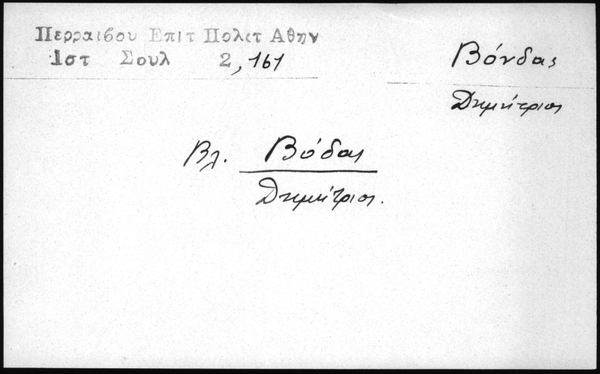 Περραιβου Επιτ Πολιτ Αθην
Ιστ Σουλ 2,161
Βόνδας
Δημήτριος
Βλ. Βόδας
Δημήτριος.